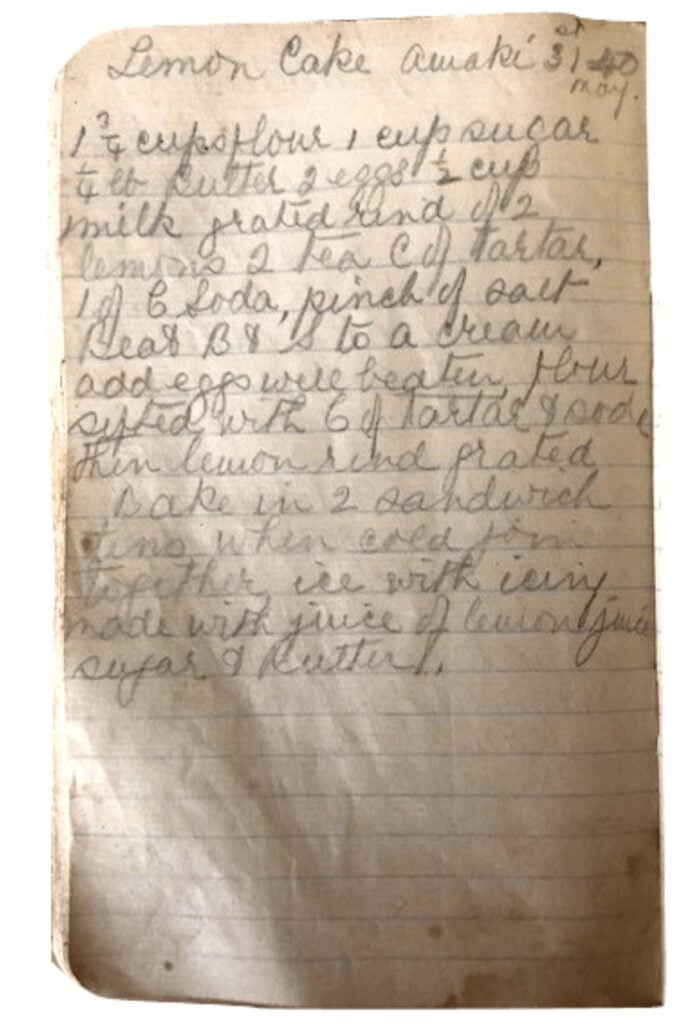 Lemon Cake Awaki 31st 40
May.
1 3/4 cups flour 1 cup sugar
1/4 lb Butter 2 eggs 1/2 cup
milk grated rind of 2
lemons 2 tea C of Tartar,
1 of C Soda, pinch of salt
Beat B & S to a cream
add eggs well beaten, flour
sifted with C of Tartar & soda
then lemon rind grated
Bake in 2 sandwich
tins when cold join
together, ice with icing
made with juice of lemon juice
sugar & Butter.